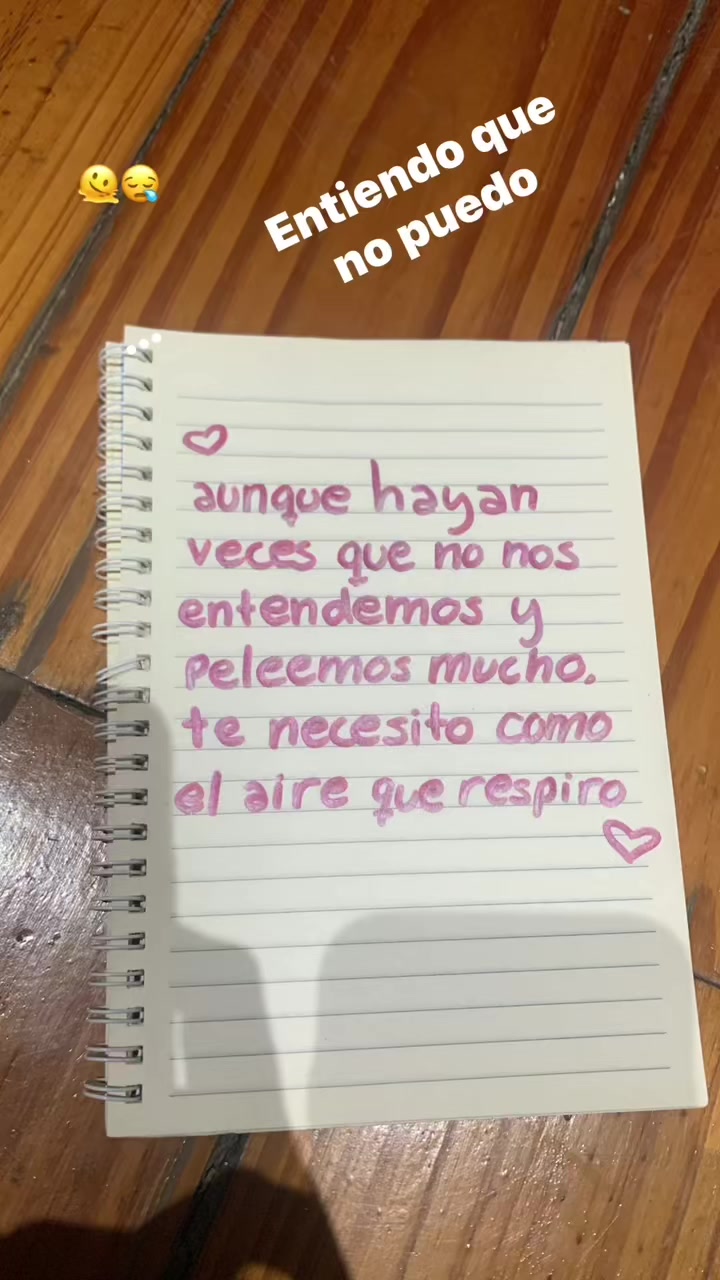 Entiendo que
no puedo
🫠😪
♡
aunque hayan
veces que no nos
entendemos y
peleemos mucho.
te necesito como
el aire que respiro
♡